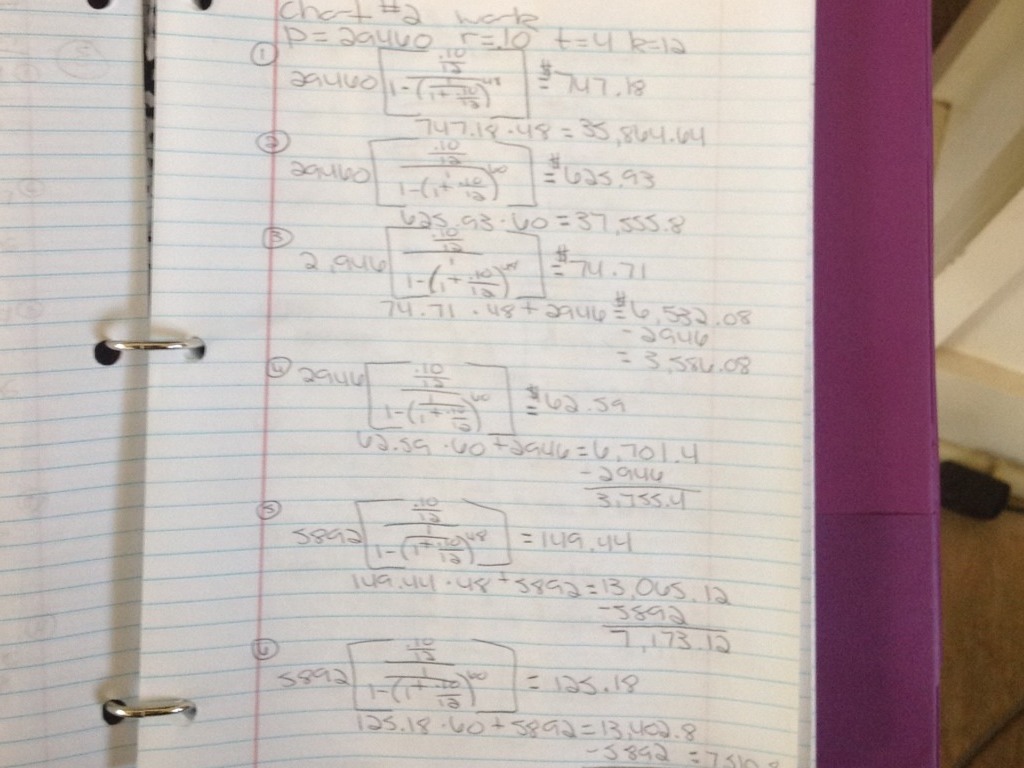 Chart #2 work
P = 29460 r=.10 t=4 k=12
① 29460 [ (.10/12) / (1-(1/(1+.10/12))^48) ] = $747.18
747.18 · 48 = 35,864.64
② 29460 [ (.10/12) / (1-(1/(1+.10/12))^60) ] = $625.93
625.93 · 60 = 37,555.8
③ 2,946 [ (.10/12) / (1-(1/(1+.10/12))^48) ] = $74.71
74.71 · 48 + 2946 = $6,532.08
- 2946
= 3,586.08
④ 2946 [ (.10/12) / (1-(1/(1+.10/12))^60) ] = $62.59
62.59 · 60 + 2946 = 6,701.4
- 2946
3,755.4
⑤ 5892 [ (.10/12) / (1-(1/(1+.10/12))^48) ] = 149.44
149.44 · 48 + 5892 = 13,065.12
- 5892
7,173.12
⑥ 5892 [ (.10/12) / (1-(1/(1+.10/12))^60) ] = 125.18
125.18 · 60 + 5892 = 13,402.8
- 5892 =